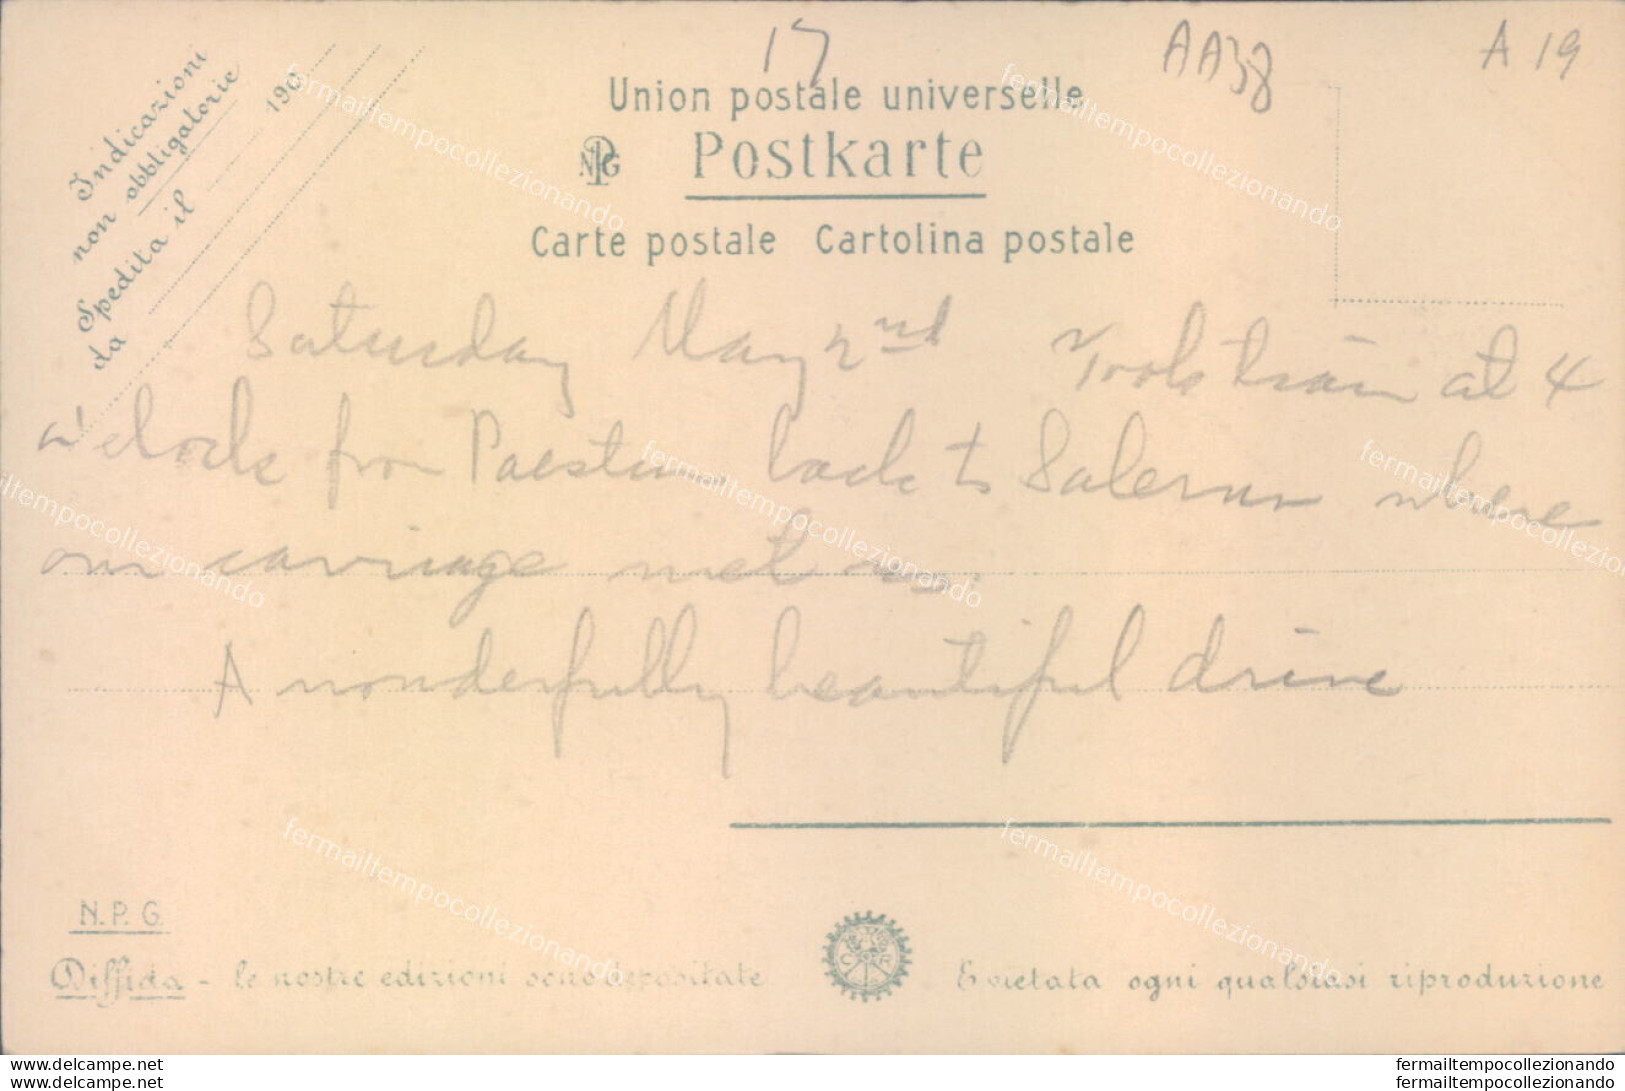 17
AA38
A 19
Indicazioni
non obbligatorie
Spedita il 190
da
Union postale universelle
NPG Postkarte
Carte postale Cartolina postale
Saturday May 2nd Took train at 4
o'clock from Paestum back to Salerno where
our carriage met us.
A wonderfully beautiful drive
N. P. G.
Diffida - le nostre edizioni sono depositate
È vietata ogni qualsiasi riproduzione
fermailtempocollezionando
fermailtempocollezionando
fermailtempocollezionando
fermailtempocollezionando
fermailtempocollezionando
fermailtempocollezionando
fermailtempocollezionando
www.delcampe.net
www.delcampe.net
fermailtempocollezionando
fermailtempocollezionando